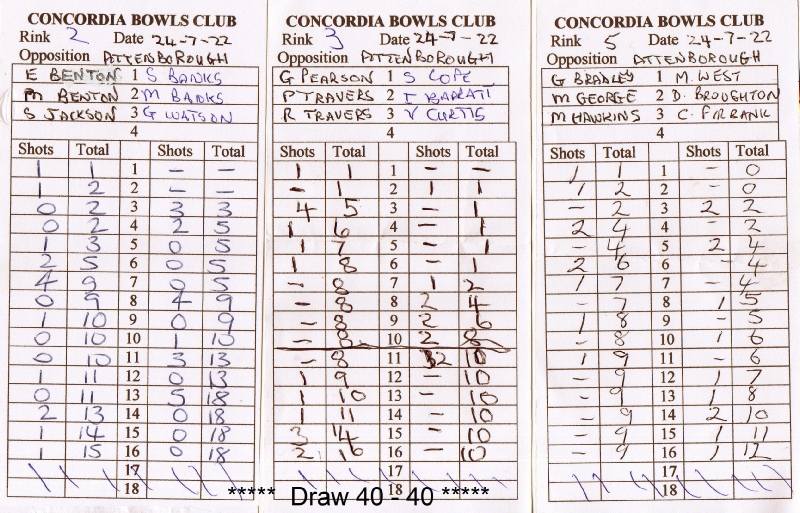 CONCORDIA BOWLS CLUB
Rink 2 Date 24-7-22
Opposition ATTENBOROUGH
E BENTON 1 S BANKS
M BENTON 2 M BANKS
S JACKSON 3 G WATSON
4
Shots Total Shots Total
1 1 1 – –
1 2 2 – –
0 2 3 3 3
0 2 4 2 5
1 3 5 0 5
2 5 6 0 5
4 9 7 0 5
0 9 8 4 9
1 10 9 0 9
0 10 10 1 10
0 10 11 3 13
1 11 12 0 13
0 11 13 5 18
2 13 14 0 18
1 14 15 0 18
1 15 16 0 18
17
18
CONCORDIA BOWLS CLUB
Rink 3 Date 24-7-22
Opposition ATTENBOROUGH
G PEARSON 1 S COPE
P TRAVERS 2 I BARRATT
R TRAVERS 3 V CURTIS
4
Shots Total Shots Total
1 1 1 – –
– 1 2 1 1
4 5 3 – 1
1 6 4 – 1
1 7 5 – 1
1 8 6 – 1
– 8 7 1 2
– 8 8 2 4
– 8 9 2 6
– 8 10 2 8
– 8 11 2 10
1 9 12 – 10
1 10 13 – 10
1 11 14 – 10
3 14 15 – 10
2 16 16 – 10
17
18
CONCORDIA BOWLS CLUB
Rink 5 Date 24-7-22
Opposition ATTENBOROUGH
G BRADLEY 1 M. WEST
M GEORGE 2 D. BROUGHTON
M HAWKINS 3 C. FIRBANK
4
Shots Total Shots Total
1 1 1 – 0
1 2 2 – 0
– 2 3 2 2
2 4 4 – 2
– 4 5 2 4
2 6 6 – 4
1 7 7 – 4
– 7 8 1 5
1 8 9 – 5
– 8 10 1 6
1 9 11 – 6
– 9 12 1 7
– 9 13 1 8
– 9 14 2 10
– 9 15 1 11
– 9 16 1 12
17
18
***** Draw 40 - 40 *****